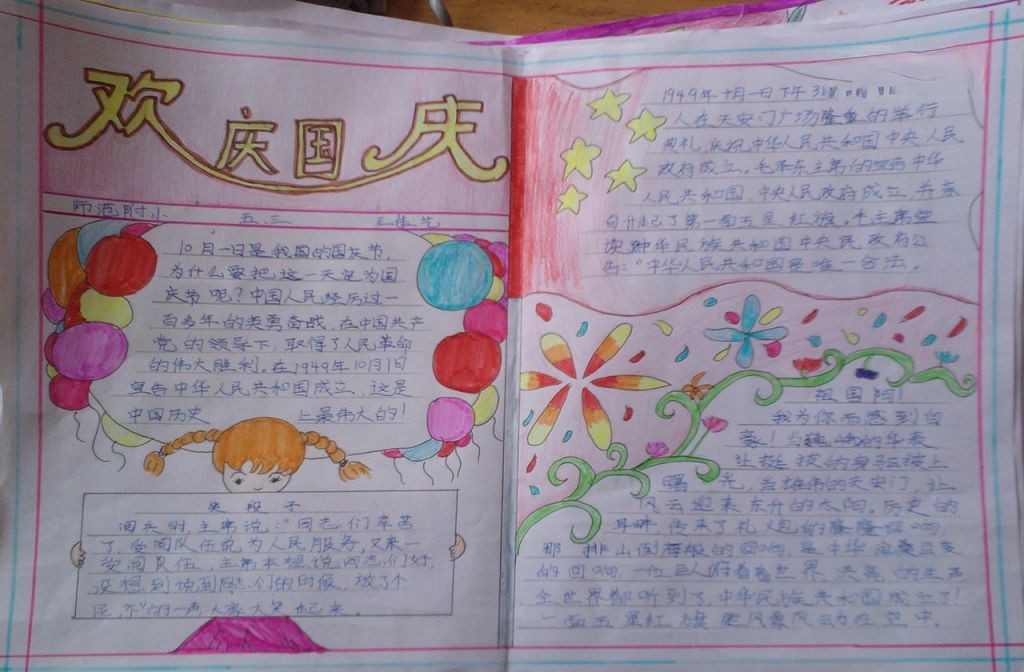 欢庆国庆
师范附小 五.三 王佳艺
10月一日是我国的国庆节,
为什么要把这一天定为国
庆节呢?中国人民经历过一
百多年的英勇奋战,在中国共产
党的领导下,取得了人民革命
的伟大胜利.在1949年10月1日
宣告中华人民共和国成立,这是
中国历史 上最伟大的!
笑段子
阅兵时主席说:"同志们辛苦
了,受阅队伍说为人民服务,又来一
受阅队伍,主席本想说同志们好,
没想到说到同志们的时候,放了个
屁,"的一声,大家大笑起来.
1949年十月一日下午3
人在天安门广场隆重的举行
典礼,庆祝中华人民共和国中央人民
政府成立。毛泽东主席的宣告中华
人民共和国,中央人民政府成立,并亲
自升起了第一面五星红旗。毛主席宣
读中华民族共和国中央民政府公
告:"中华人民共和国是唯一合法,
祖国阿!
我为你而感到自
豪!当巍峨的华表
让挺拔的身躯披上
曙光,当雄伟的天安门,让
风云迎来东升的太阳,历史的
耳畔,传来了礼炮的隆隆响,
那排山倒海般的回响,是中华沧桑巨变
的回响,一位巨人俯看着世界,洪亮的生声
全世界都听到了,中华民族共和国成立了!
一面五星红旗 风飘动在空中.